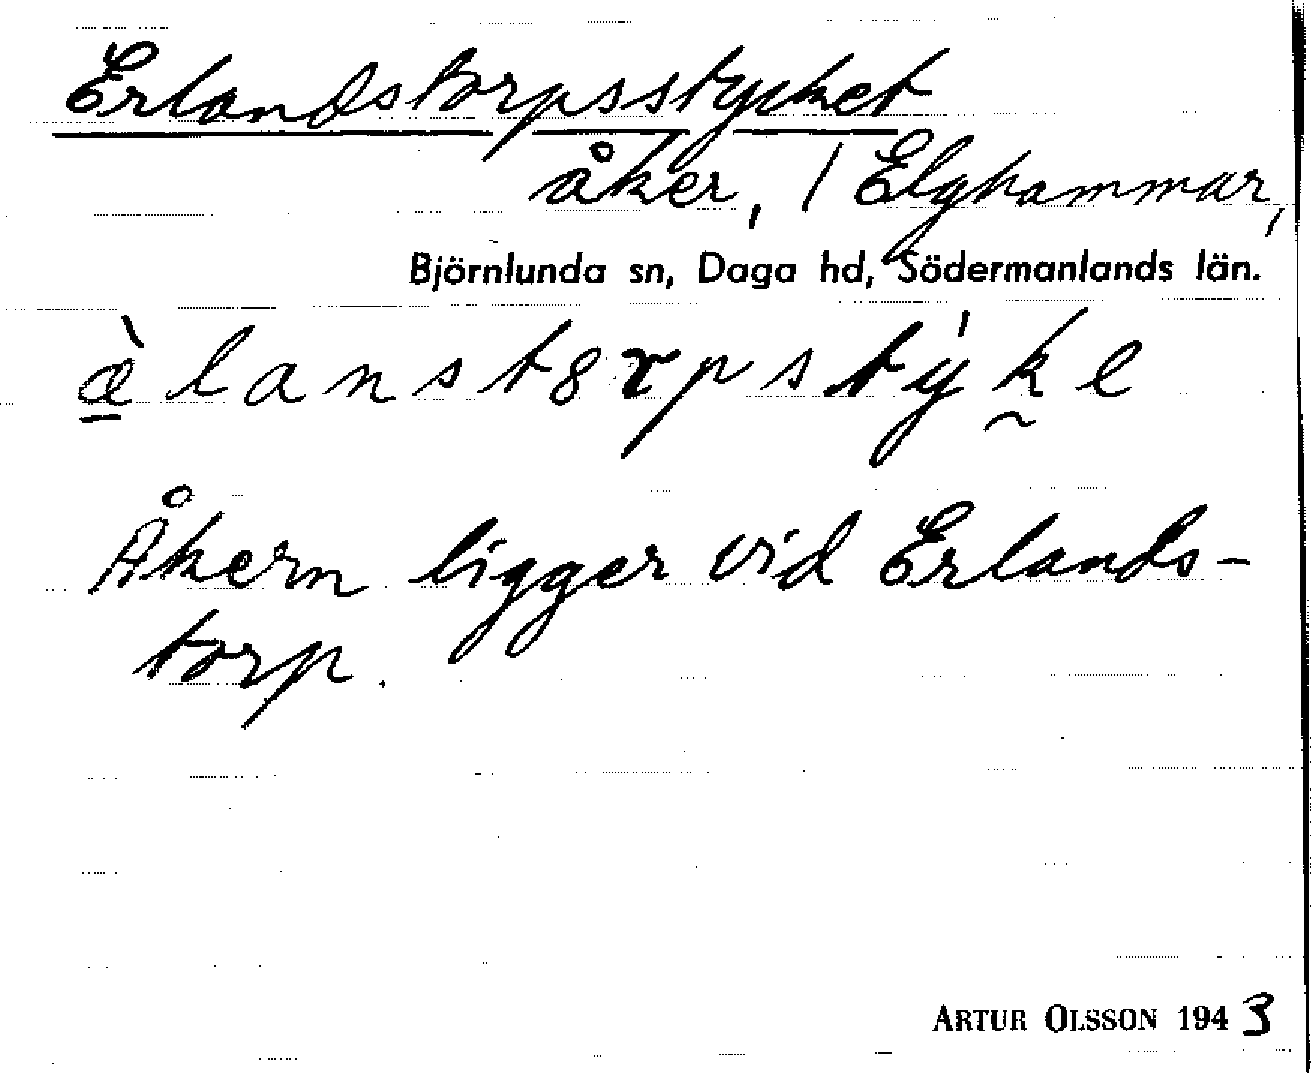 Erlandstorpsstycket
åker, / Elghammar,
Björnlunda sn, Daga hd, Södermanlands län.
æ̀lanst8rpstýke
Åkern ligger vid Erlands-
torp.
ARTUR OLSSON 1943